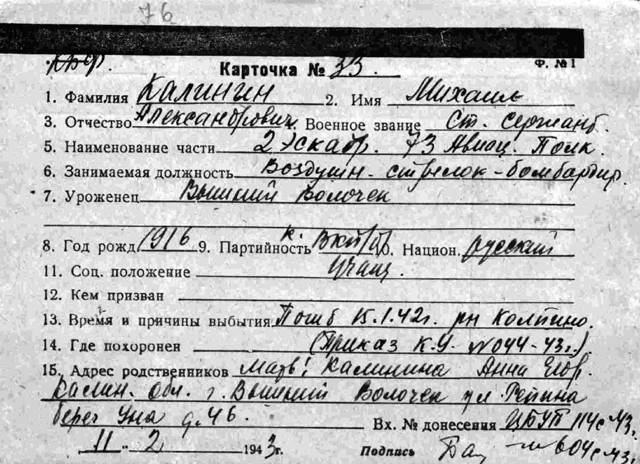 76
КБФ.
Карточка № 33. Ф. №1
1. Фамилия Калинин 2. Имя Михаил
3. Отчество Александрович 4. Военное звание Ст. сержант.
5. Наименование части 2 Эскадр. 73 Авиац. Полк.
6. Занимаемая должность Воздушн. стрелок-бомбардир.
7. Уроженец Вышний Волочек
8. Год рожд 1916 9. Партийность к. ВКП(б) 10. Национ. русский
11. Соц. положение учащ.
12. Кем призван
13. Время и причины выбытия Погиб 15.1.42г. рн Колпино.
14. Где похоронен (Приказ К.Ч. №044-43г.)
15. Адрес родственников мать: Калинина Анна Егор.
Калин. Обл. г. Вышний Волочек ул Репина
берег д. 46. Вх. № донесения ЦБУП 114с 43.
11 - 2 1943г. Подпись 604с 43г.